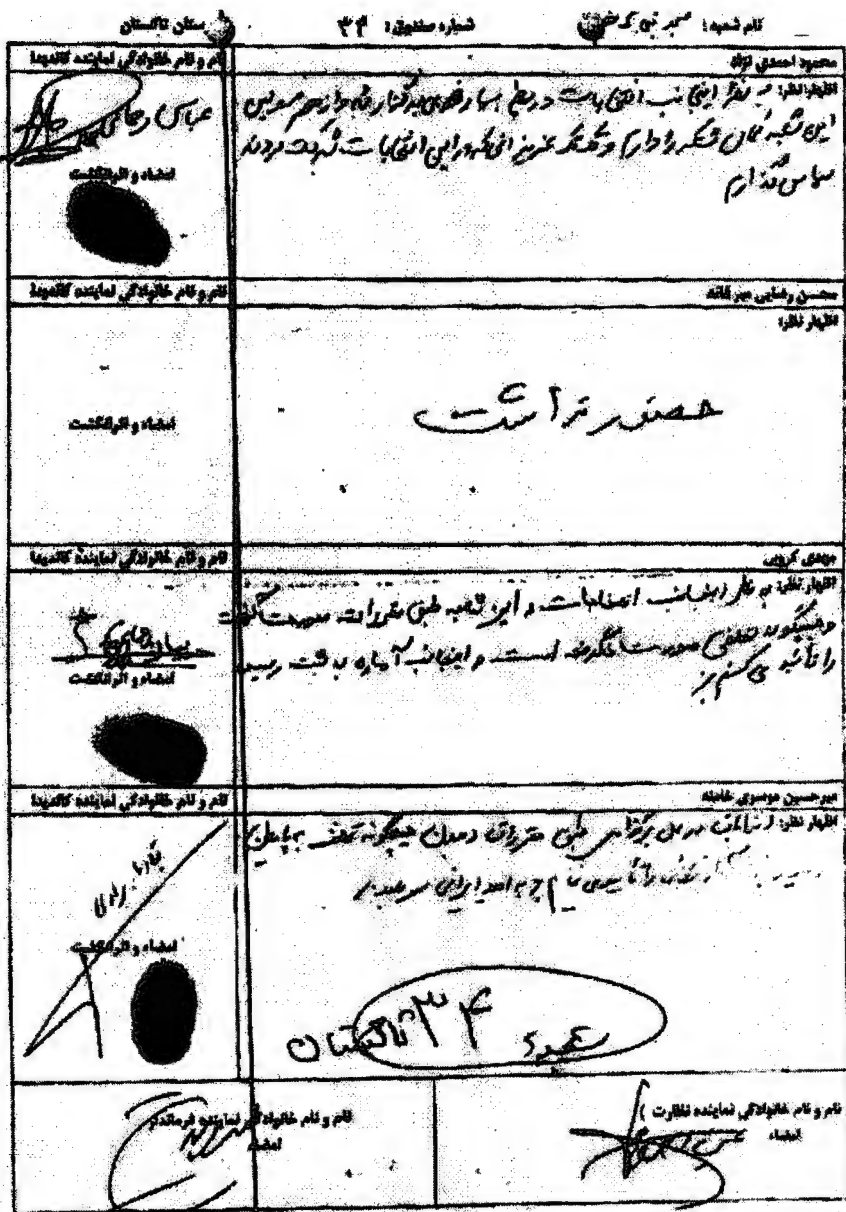 نام شعبه: مسجد نبی اکرم شماره صندوق: ۳۴ ستان تاکستان
محمود احمدی نژاد نام و نام خانوادگی نماینده کاندیدا
اظهار نظر: به نظر اینجانب انتخابات در نظم بسیار خوبی برگزار شد و از همه مسولین
این شعبه کمال تشکر را دارم و از تک تک عزیزانی که در این انتخابات شرکت کردند
سپاس گذارم
عباس
امضاء و اثرانگشت
محسن رضایی میر قائد نام و نام خانوادگی نماینده کاندیدا
اظهار نظر:
حضور نداشت
امضاء و اثرانگشت
مهدی کروبی نام و نام خانوادگی نماینده کاندیدا
اظهار نظر: به نظر اینجانب انتخابات در این شعبه طبق مقررات صورت گرفت
و هیچگونه تخلفی صورت نگرفته است و اینجانب آماره به ثبت رسیده
را تأئید می کنم
امضاء و اثرانگشت
میرحسین موسوی خامنه نام و نام خانوادگی نماینده کاندیدا
اظهار نظر: اینجانب برگزاری طبق مقررات و بدون هیچگونه تخلف به پایان
رسید را به امید ایرانی سربلند
امضاء و اثرانگشت
شعبه ۳۴ تاکستان
نام و نام خانوادگی نماینده نظارت نام و نام خانوادگی نماینده فرماندار
امضاء امضاء